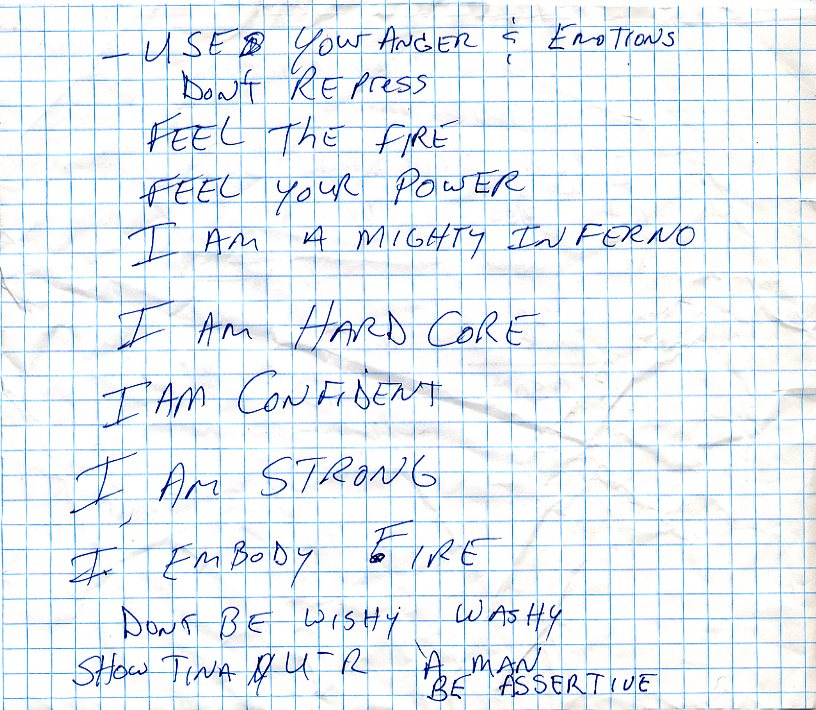 - USE YOUR ANGER & EMOTIONS
DON'T REPRESS
FEEL THE FIRE
FEEL YOUR POWER
I AM A MIGHTY INFERNO
I AM HARD CORE
I AM CONFIDENT
I AM STRONG
I EMBODY FIRE
DONT BE WISHY WASHY
SHOW TINA U-R A MAN
BE ASSERTIVE